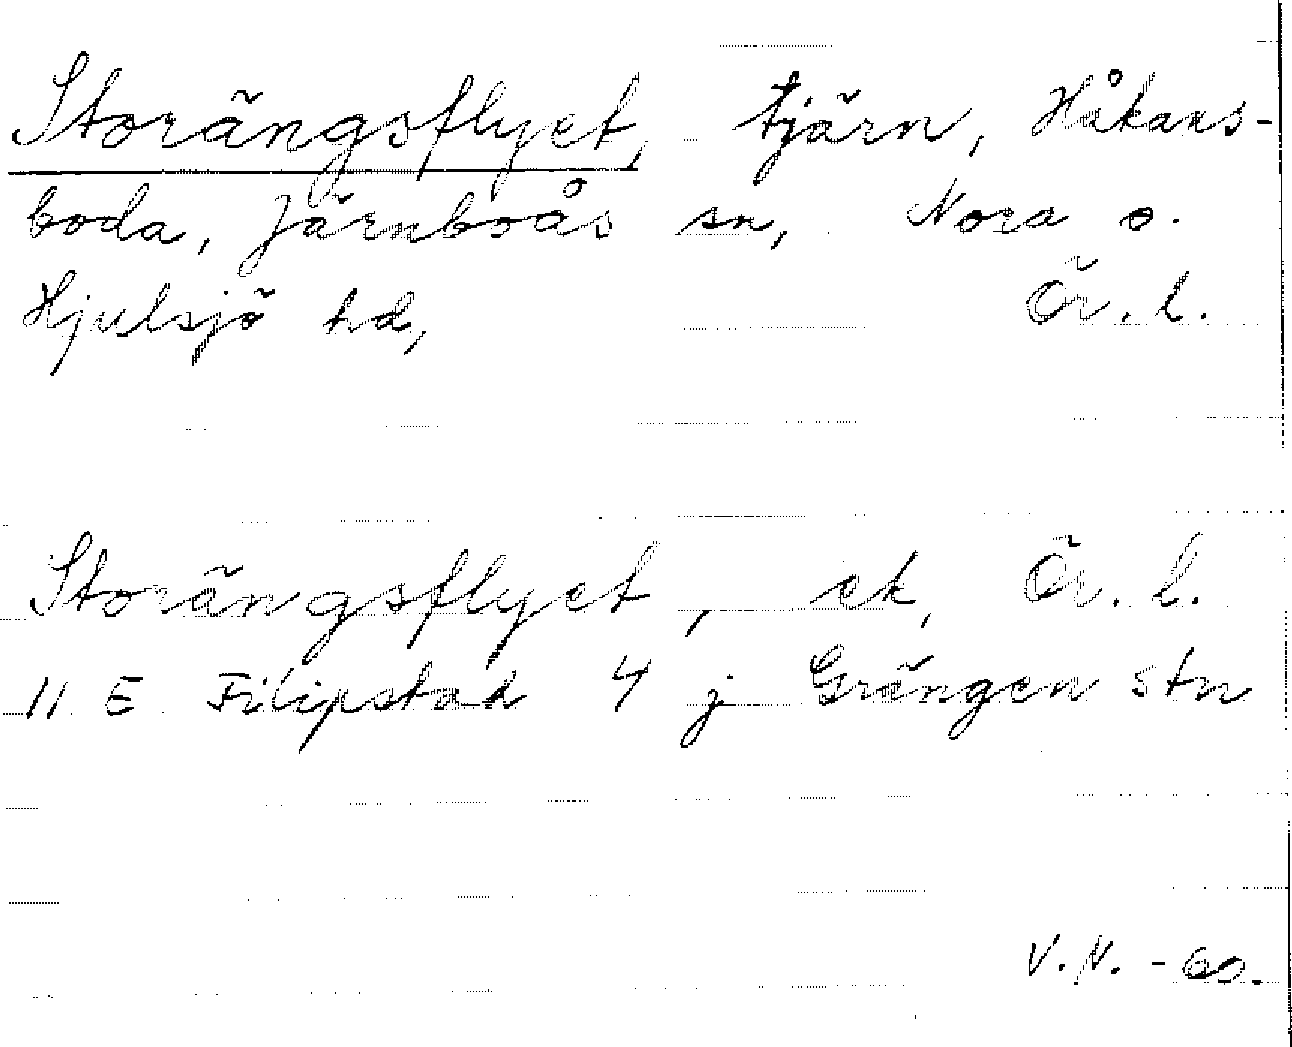 Storängsflyet, tjärn, Håkans-
boda, Järnboås sn, Nora o.
Hjulsjö hd, Ör. l.
Storängsflyet, ek, Ör. l.
11 E Filipstad 4 j Grängen stn
V.N. -60.